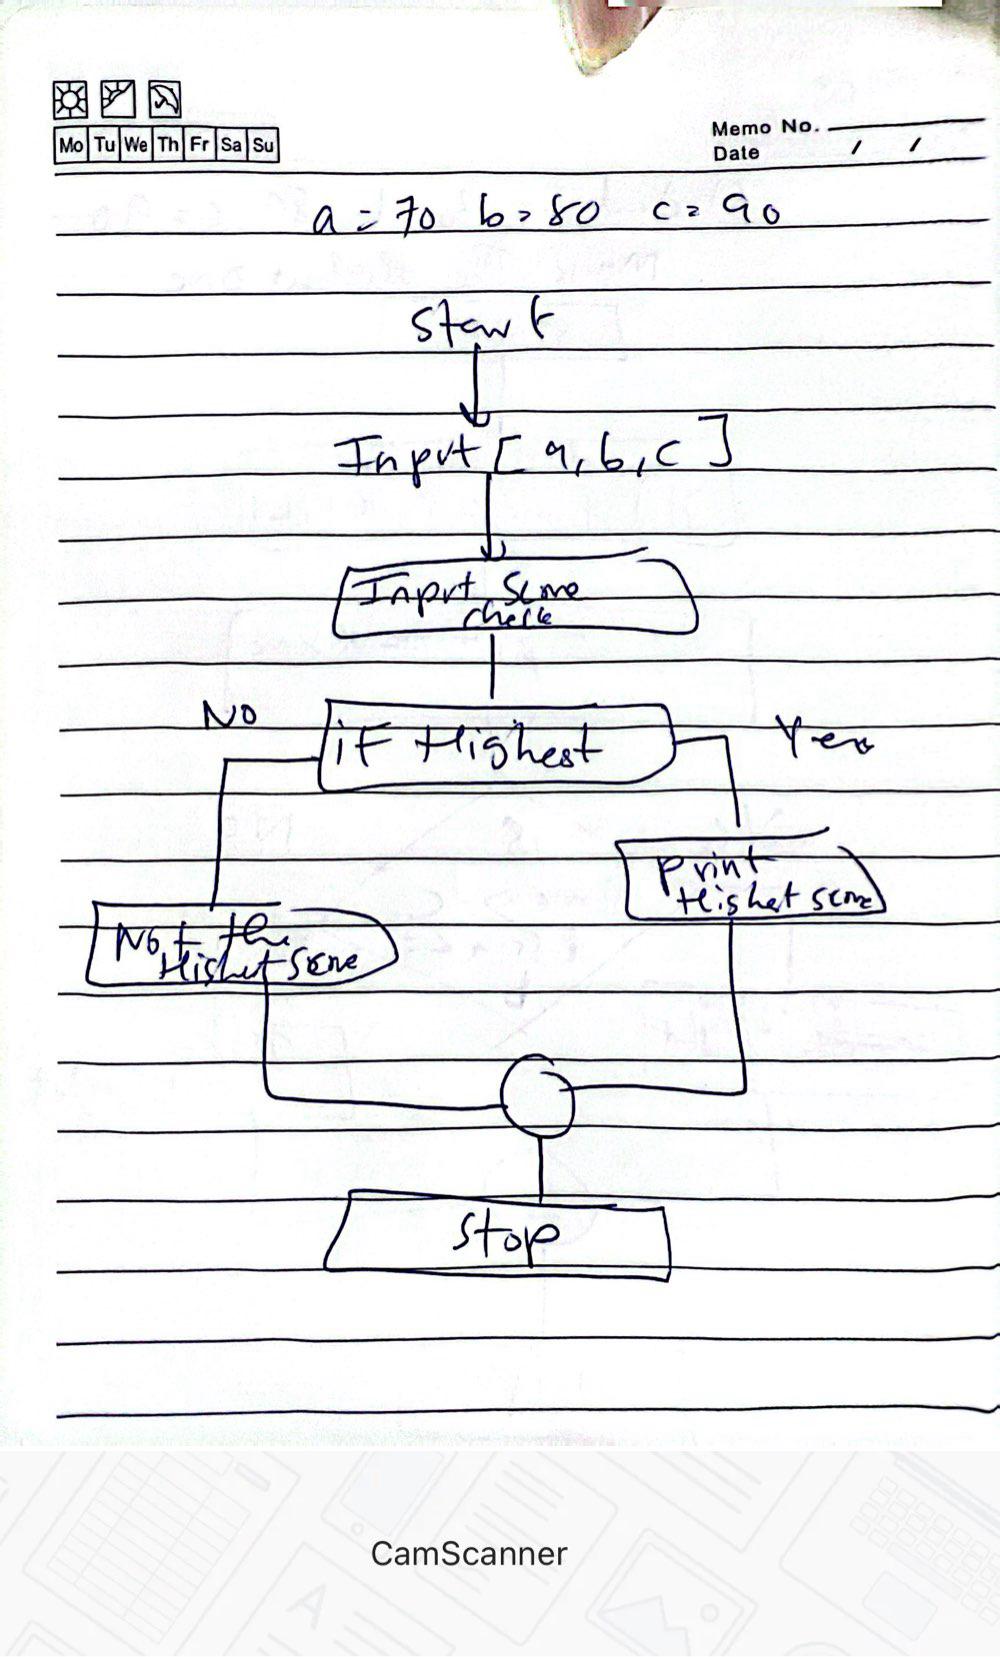 Mo Tu We Th Fr Sa Su
Memo No.
Date / /
a = 70 b = 80 c = 90
Start
Input [a, b, c]
Input Score
check
No
if Highest
Yes
Print
Highest score
Not the
Highest Score
Stop
CamScanner